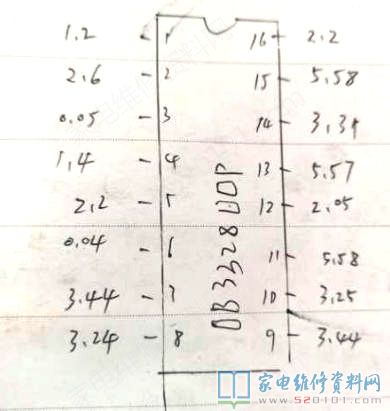 1.2 - 1 16 - 2.2
2.6 - 2 15 - 5.58
0.05 - 3 14 -
1.4 - 4 13 - 5.57
2.2 - 5 12 - 2.05
0.04 - 6 11 - 5.58
3.44 - 7 10 - 3.25
3.24 - 8 9 - 3.44
OB3328UDP
家电维修资料网
www.520101.com